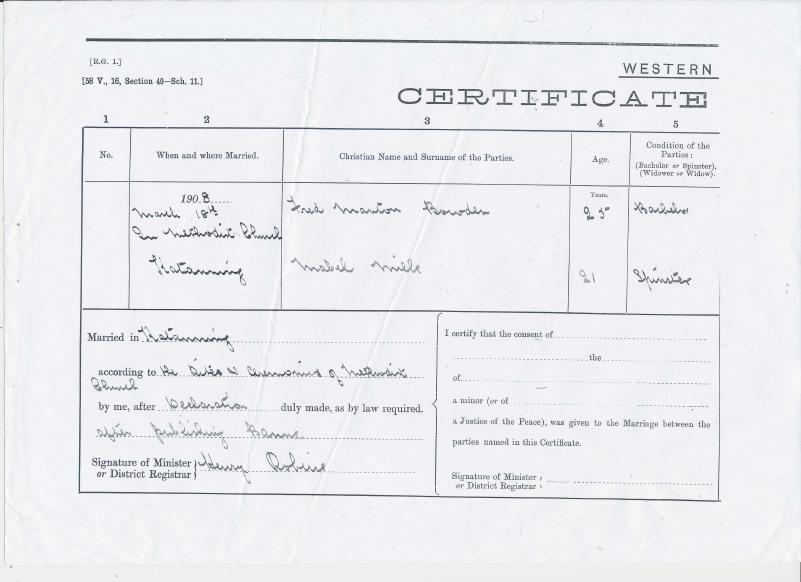 [R.G. 1.]
[58 V., 16, Section 40—Sch. 11.]
WESTERN
CERTIFICATE
1 2 3 4 5
No. When and where Married. Christian Name and Surname of the Parties. Age. Condition of the Parties: (Bachelor or Spinster), (Widower or Widow).
Years.
1908
March 18th Fred Manton Bowden 25 Bachelor
In Methodist Church
Katanning Mabel Mills 21 Spinster
Married in Katanning
according to the Rites & Ceremonies of Methodist
Church
by me, after Declaration duly made, as by law required.
after publishing Banns
Signature of Minister
or District Registrar
Henry Robins
I certify that the consent of
the
of
a minor (or of
a Justice of the Peace), was given to the Marriage between the
parties named in this Certificate.
Signature of Minister
or District Registrar